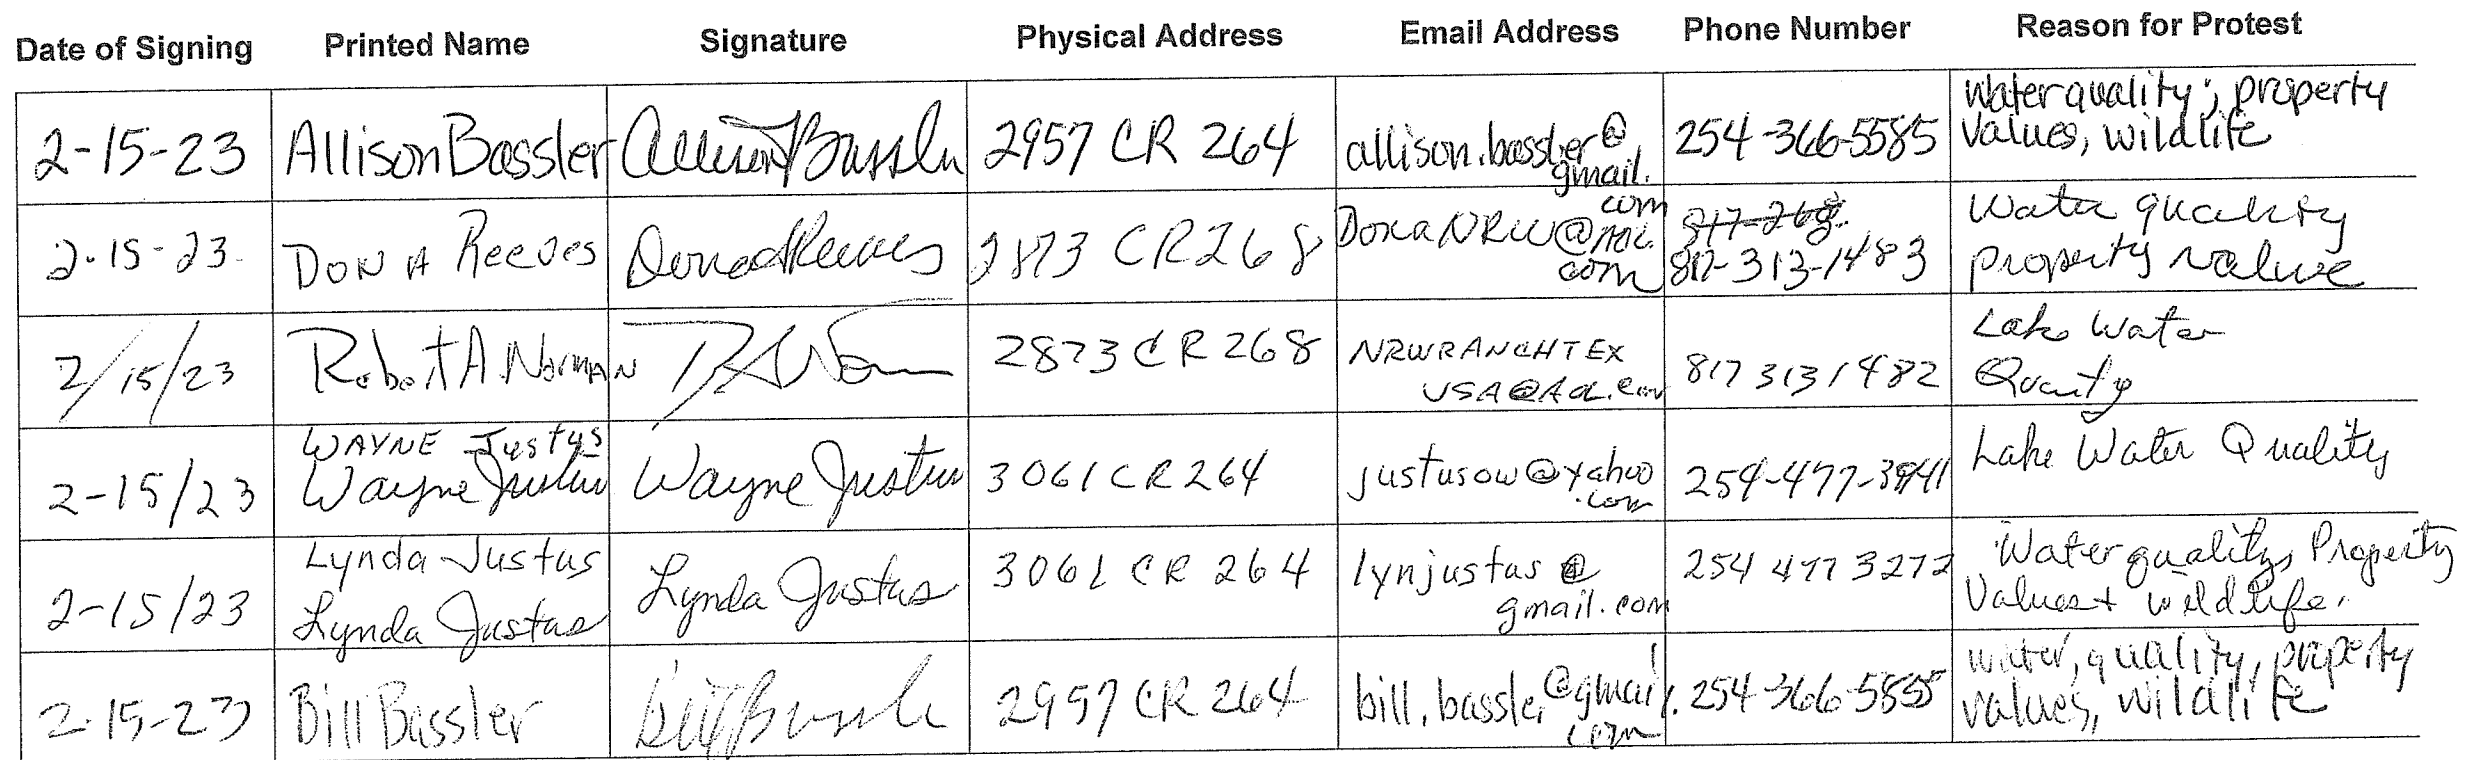 Date of Signing Printed Name Signature Physical Address Email Address Phone Number Reason for Protest
2-15-23 Allison Bassler Allison Bassler 2957 CR 264 allison.bassler@gmail.com 254-366-5585 Water quality, property
values, wildlife
2-15-23 DON A Reeves Dona Reeves 2873 CR 268 DonaNRW@AOL.com 817-268 817-313-1483 Water quality
property value
2/15/23 Robert A. Norman 2873 CR 268 NRWRANCHTEX
USA@AOL.com 817 313 1482 Lake Water
Quality
WAYNE Justus
2-15/23 Wayne Justus Wayne Justus 3061 CR 264 justusow@yahoo
.com 254-477-3941 Lake Water Quality
Lynda Justus
2-15/23 Lynda Justus Lynda Justus 3061 CR 264 lynjustus@
gmail.com 254 477 3272 Water quality, Property
Values + wildlife.
2-15-23 Bill Bassler Bill Bassler 2957 CR 264 bill.bassler@gmail.
com 254-366-5855 water, quality, property
values, wildlife